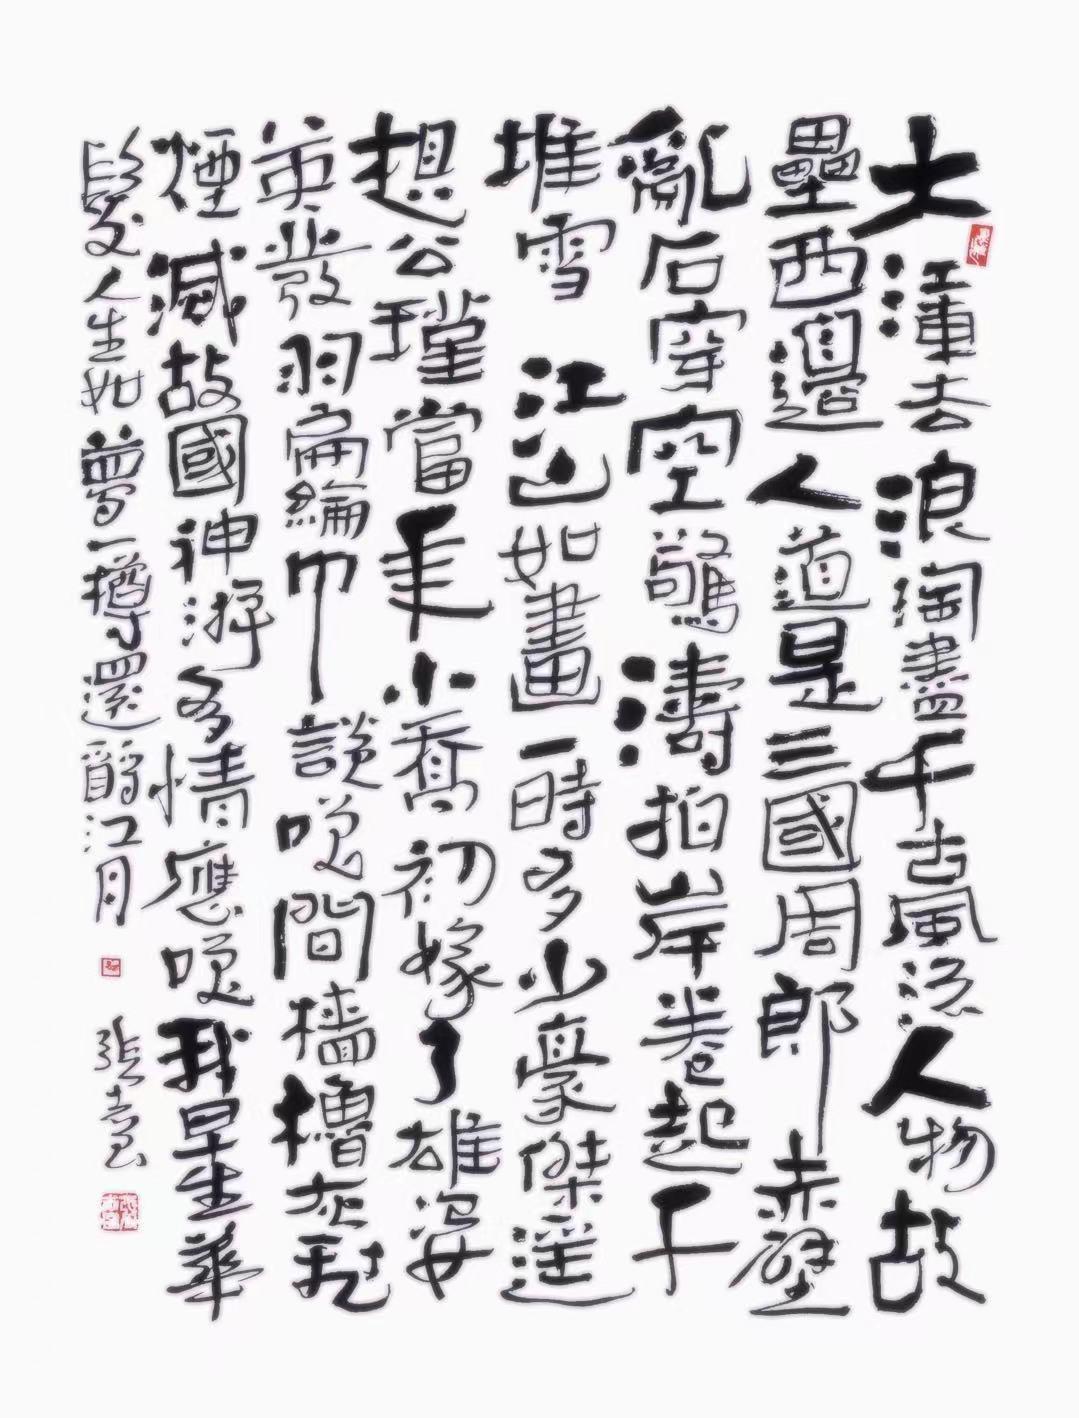 大江東去浪淘盡千古風流人物故
壘西邊人道是三國周郎赤壁
亂石穿空驚濤拍岸卷起千
堆雪江山如畫一時多少豪傑遥
想公瑾當年小喬初嫁了雄姿
英發羽扇綸巾談笑間檣櫓灰飛
煙滅故國神游多情應笑我早生華
髮人生如夢一樽還酹江月
張